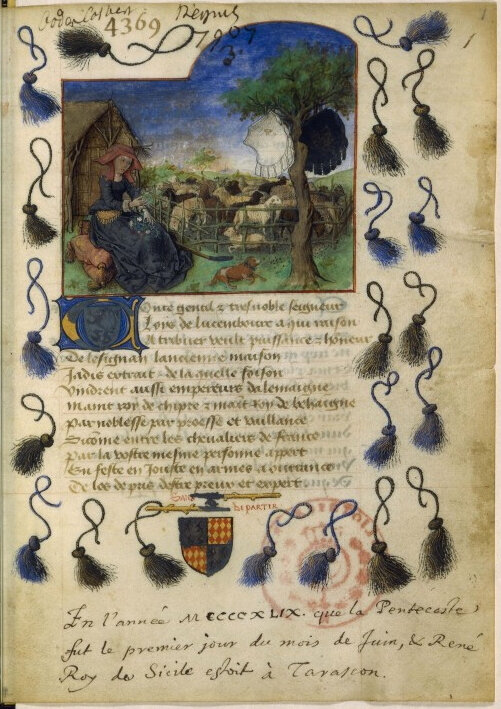 Codex Colbert
4369
Regius
7907
3.
1
Tonte gentil z tresnoble seigneur
Loys de lucembourc a qui raison
Atribuer veult puissance z honeur
De lesignan lancienne maison
Jadis extrait de la quelle foison
Vindrent aussi empereurs dalemaigne
Maint roy de chipre z mait roy de behaigne
Par noblesse par proesse et vaillance
Sicōme entre les chevaliers de france
Par la vostre mesme personne appert
En feste en Jouste en armes a oultrance
De los de pris destre preux et expert
Sans
departir
En l'année MCCCCXLIX. que la Pentecoste
fut le premier jour du mois de Juin, & René
Roy de Sicile estoit à Tarascon.